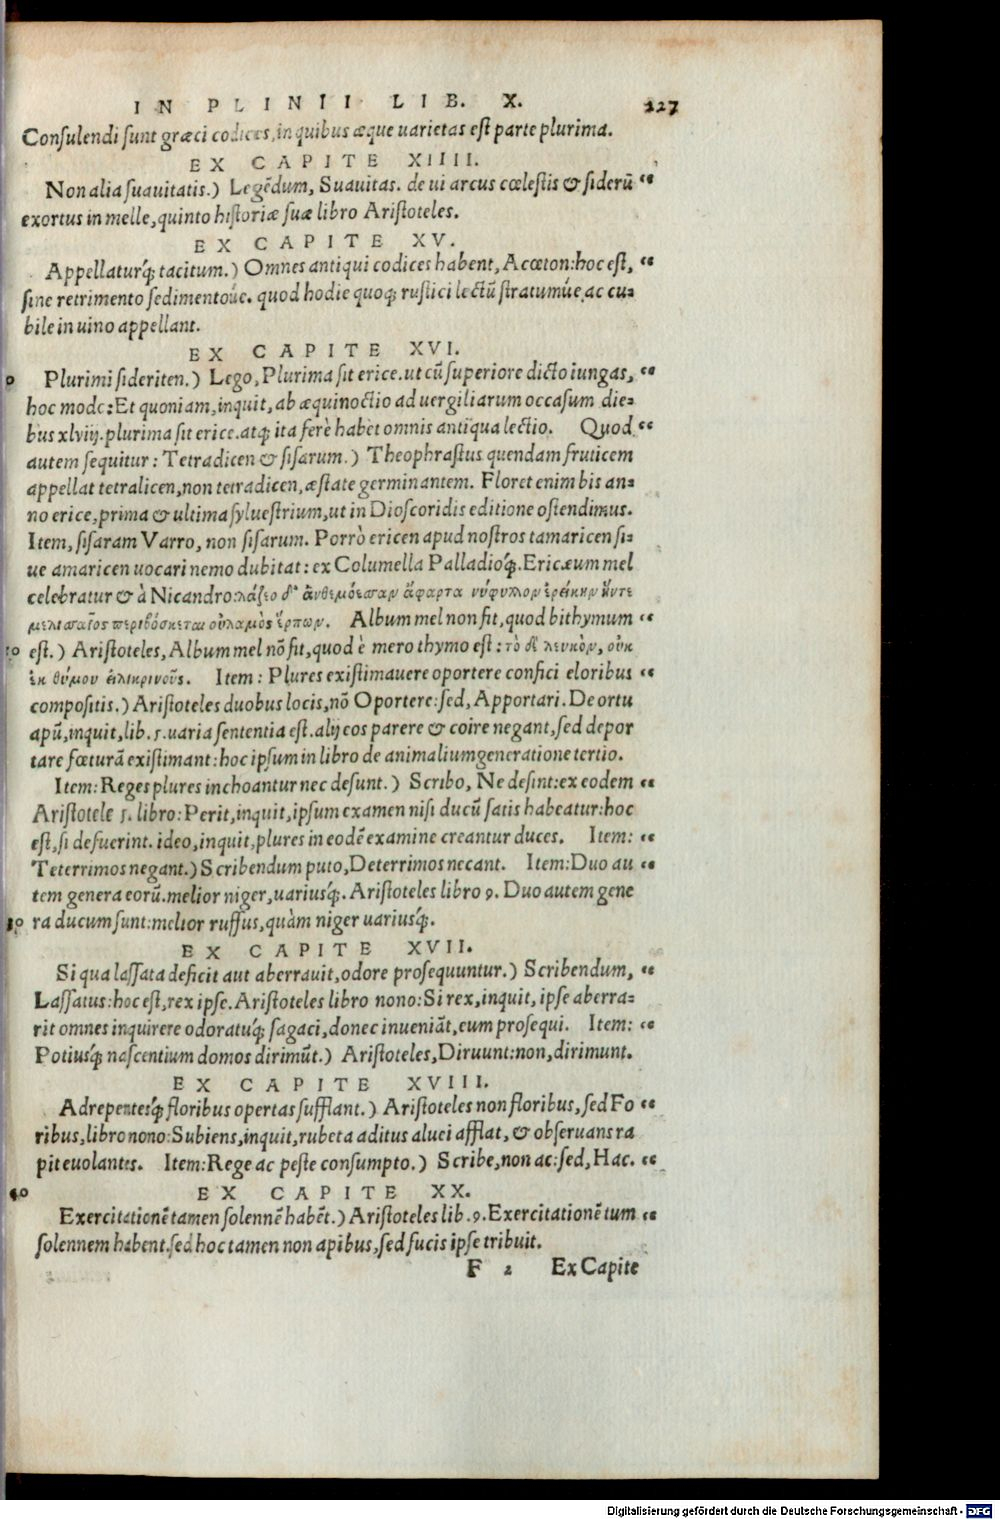 IN PLINII LIB. X. 227
Consulendi sunt græci codices, in quibus æque uarietas est parte plurima.
EX CAPITE XIIII.
Non alia suauitatis.) Legẽdum, Suauitas. de ui arcus cœlestis & siderũ “
exortus in melle, quinto historiæ suæ libro Aristoteles.
EX CAPITE XV.
Appellaturq́; tacitum.) Omnes antiqui codices habent, Acœton: hoc est, “
sine retrimento sedimentoúe. quod hodie quoq; rustici lectũ stratumúe ac cu=
bile in uino appellant.
EX CAPITE XVI.
Plurimi sideriten.) Lego, Plurima sit erice. ut cũ superiore dicto iungas, “
hoc modo: Et quoniam, inquit, ab æquinoctio ad uergiliarum occasum die=
bus xlviij. plurima sit erice. atq; ita ferè habet omnis antiqua lectio. Quod “
autem sequitur: Tetradicen & sisarum.) Theophrastus quendam fruticem
appellat tetralicen, non tetradicen, æstate germinantem. Floret enim bis an=
no erice, prima & ultima syluestrium, ut in Dioscoridis editione ostendimus.
Item, sisaram Varro, non sisarum. Porrò ericen apud nostros tamaricen si=
ue amaricen uocari nemo dubitat: ex Columella Palladioq́;. Ericæum mel
celebratur & à Nicandro: λάζεο δ' ἀνθεμόεσσαν ἄφαρτα νύφυλλον ἐρείκην ἥντε
μελισσαῖος περιβόσκεται οὐλαμὸς ἕρπων. Album mel non fit, quod bithymum “
20 est.) Aristoteles, Album mel nõ fit, quod è mero thymo est: τὸ δὲ λευκὸν, οὐκ
ἐκ θύμου εἰλικρινοῦς. Item: Plures existimauere oportere confici eloribus “
compositis.) Aristoteles duobus locis, nõ Oportere: sed, Apportari. De ortu
apũ, inquit, lib. 5. uaria sententia est. alij eos parere & coire negant, sed depor
tare fœturã existimant: hoc ipsum in libro de animalium generatione tertio.
Item: Reges plures inchoantur nec desunt.) Scribo, Ne desint: ex eodem “
Aristotele 5. libro: Perit, inquit, ipsum examen nisi ducũ satis habeatur: hoc
est, si defuerint. ideo, inquit, plures in eodẽ examine creantur duces. Item: “
Teterrimos negant.) Scribendum puto, Deterrimos necant. Item: Duo au “
tem genera eorũ. melior niger, uariusq́;. Aristoteles libro 9. Duo autem gene
30 ra ducum sunt: melior ruffus, quàm niger uariusq́;.
EX CAPITE XVII.
Si qua lassata deficit aut aberrauit, odore prosequuntur.) Scribendum, “
Lassatus: hoc est, rex ipse. Aristoteles libro nono: Si rex, inquit, ipse aberra=
rit omnes inquirere odoratuq́; sagaci, donec inueniãt, eum prosequi. Item: “
Potiusq́; nascentium domos dirimũt.) Aristoteles, Diruunt: non, dirimunt.
EX CAPITE XVIII.
Adrepentesq́; floribus opertas sufflant.) Aristoteles non floribus, sed Fo “
ribus, libro nono: Subiens, inquit, rubeta aditus aluei afflat, & obseruans ra
pit euolantes. Item: Rege ac peste consumpto.) Scribe, non ac: sed, Hac. “
40 EX CAPITE XX.
Exercitationẽ tamen solennẽ habẽt.) Aristoteles lib. 9. Exercitationẽ tum “
solennem habent. sed hoc tamen non apibus, sed fucis ipse tribuit.
F 2 Ex Capite
Digitalisierung gefördert durch die Deutsche Forschungsgemeinschaft - DFG